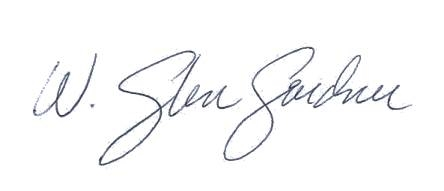 W. Glen Gardner